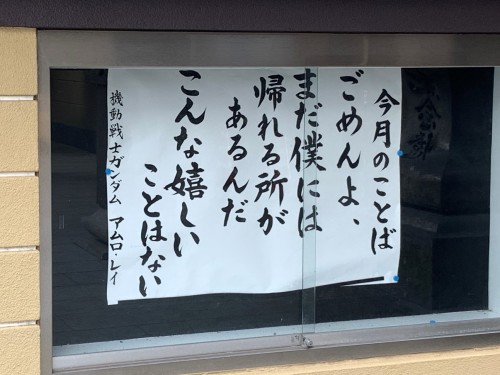 今月のことば
ごめんよ、
まだ僕には
帰れる所が
あるんだ
こんな嬉しい
ことはない
機動戦士ガンダム アムロ・レイ